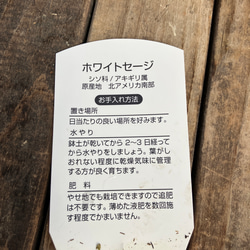 ホワイトセージ
シソ科/アキギリ属
原産地 北アメリカ南部
お手入れ方法
置き場所
日当たりの良い場所を好みます。
水やり
鉢土が乾いてから2~3日経って
から水やりをしましょう。葉がし
おれない程度に乾燥気味に管理
する方が良く育ちます。
肥料
やせ地でも栽培できますので追肥
は不要です。薄めた液肥を数回施
す程度でかまいません。